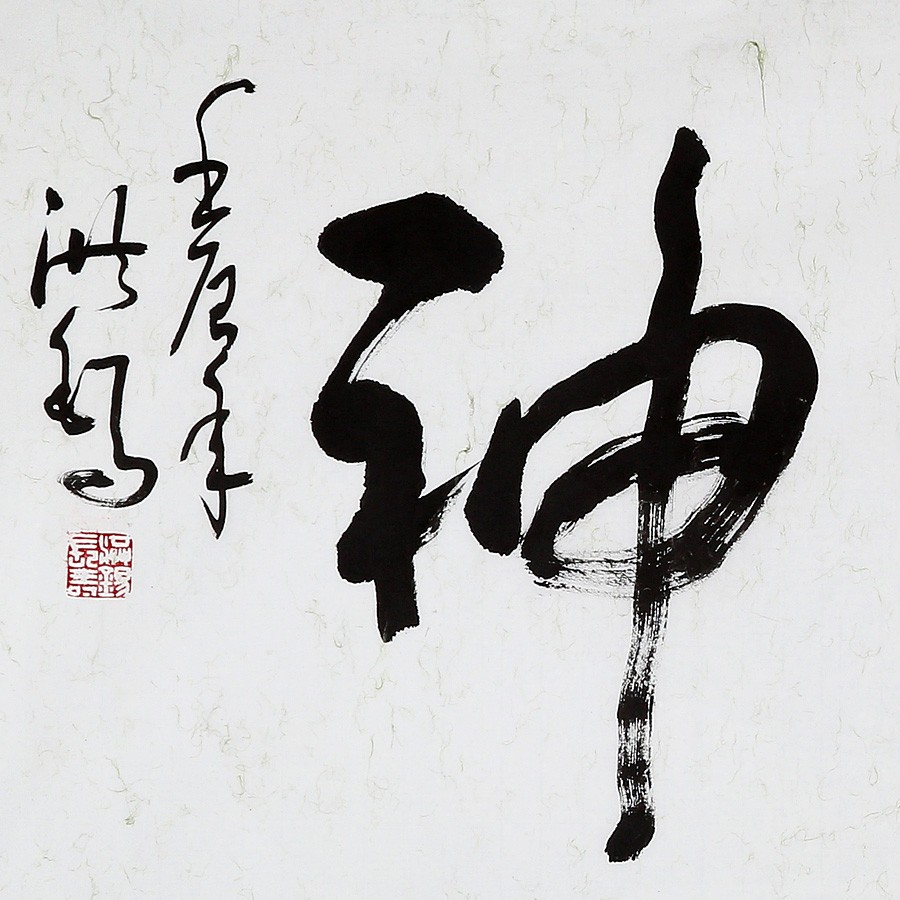 神
壬辰年
洪錫